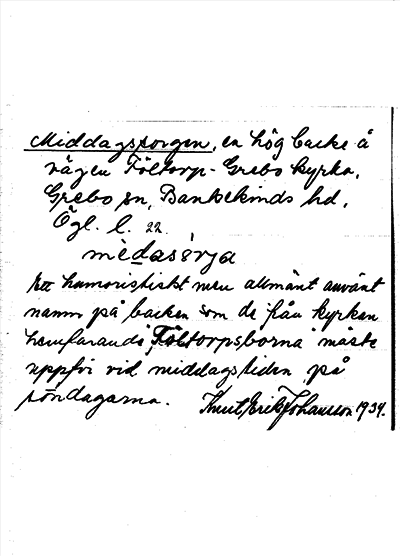 Middagssorgen, en hög backe å
vägen Föltorp-Grebo kyrka,
Grebo sn, Bankekinds hd,
Ögl. l. 22.
mèdasérja
Ett humoristiskt men allmänt använt
namn på backen som de från kyrkan
hemfarande "Föltorpsborna" måste
uppför vid middagstiden på
söndagarna. Knut Erik Johansson 1934.